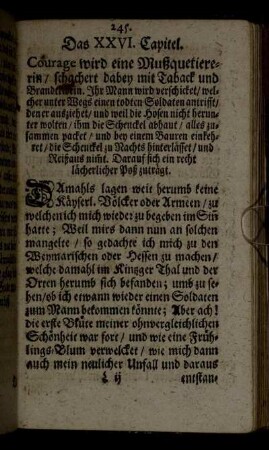 245.
Das XXVI. Capitel.
Courage wird eine Mußquetiere-
rin / schachert dabey mit Taback und
Brandtwein. Ihr Mann wird verschicket / wel-
cher unter Wegs einen todten Soldaten antrifft /
dener ausziehet / und weil die Hosen nicht herun-
ter wolten / ihm die Schenckel abhaut / alles zu-
sammen packet / und bey einem Bauren einkeh-
ret / die Schenckel zu Nachts hinterlässet / und
Reißaus nim̃t. Darauf sich ein recht
lächerlicher Poß zuträgt.
DAmahls lagen weit herumb keine
Käyserl. Völcker oder Armeen / zu
welchen ich mich wieder zu begeben im Siñ
hatte; Weil mirs dann nun an solchen
mangelte / so gedachte ich mich zu den
Weymarischen oder Hessen zu machen /
welche damahl im Kintzger Thal und der
Orten herumb sich befanden; umb zu se-
hen / ob ich etwann wieder einen Soldaten
zum Mann bekommen könnte; Aber ach!
die erste Blüte meiner ohnvergleichlichen
Schönheit war fort / und wie eine Früh-
lings-Blum verwelcket / wie mich dann
auch mein neulicher Unfall und daraus
L ij
entstan-